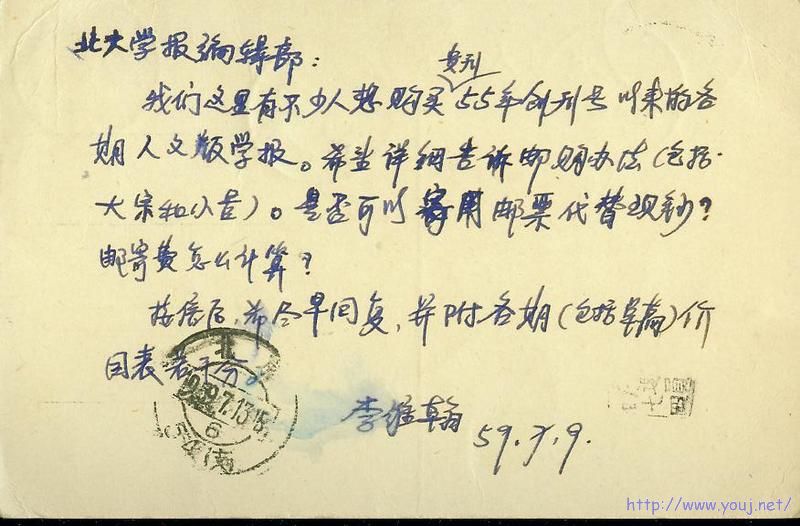 北大学报编辑部：
我们这里有不少人想购买55年创刊号以来的各
期人文版学报。希望详细告诉邮购办法（包括
大宗和小量）。是否可以寄用邮票代替现钞？
邮寄费怎么计算？
接信后，希尽早回复，并附各期（包括单篇）价
目表若干份。
李维翰
59.7.9.
北京
1959.7.13.15
6
http://www.youj.net/